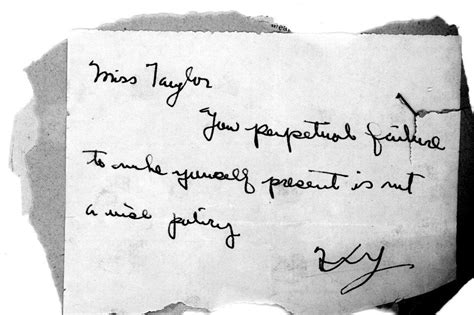 Miss Taylor
Your perpetual failure
to make yourself present is not
a wise policy